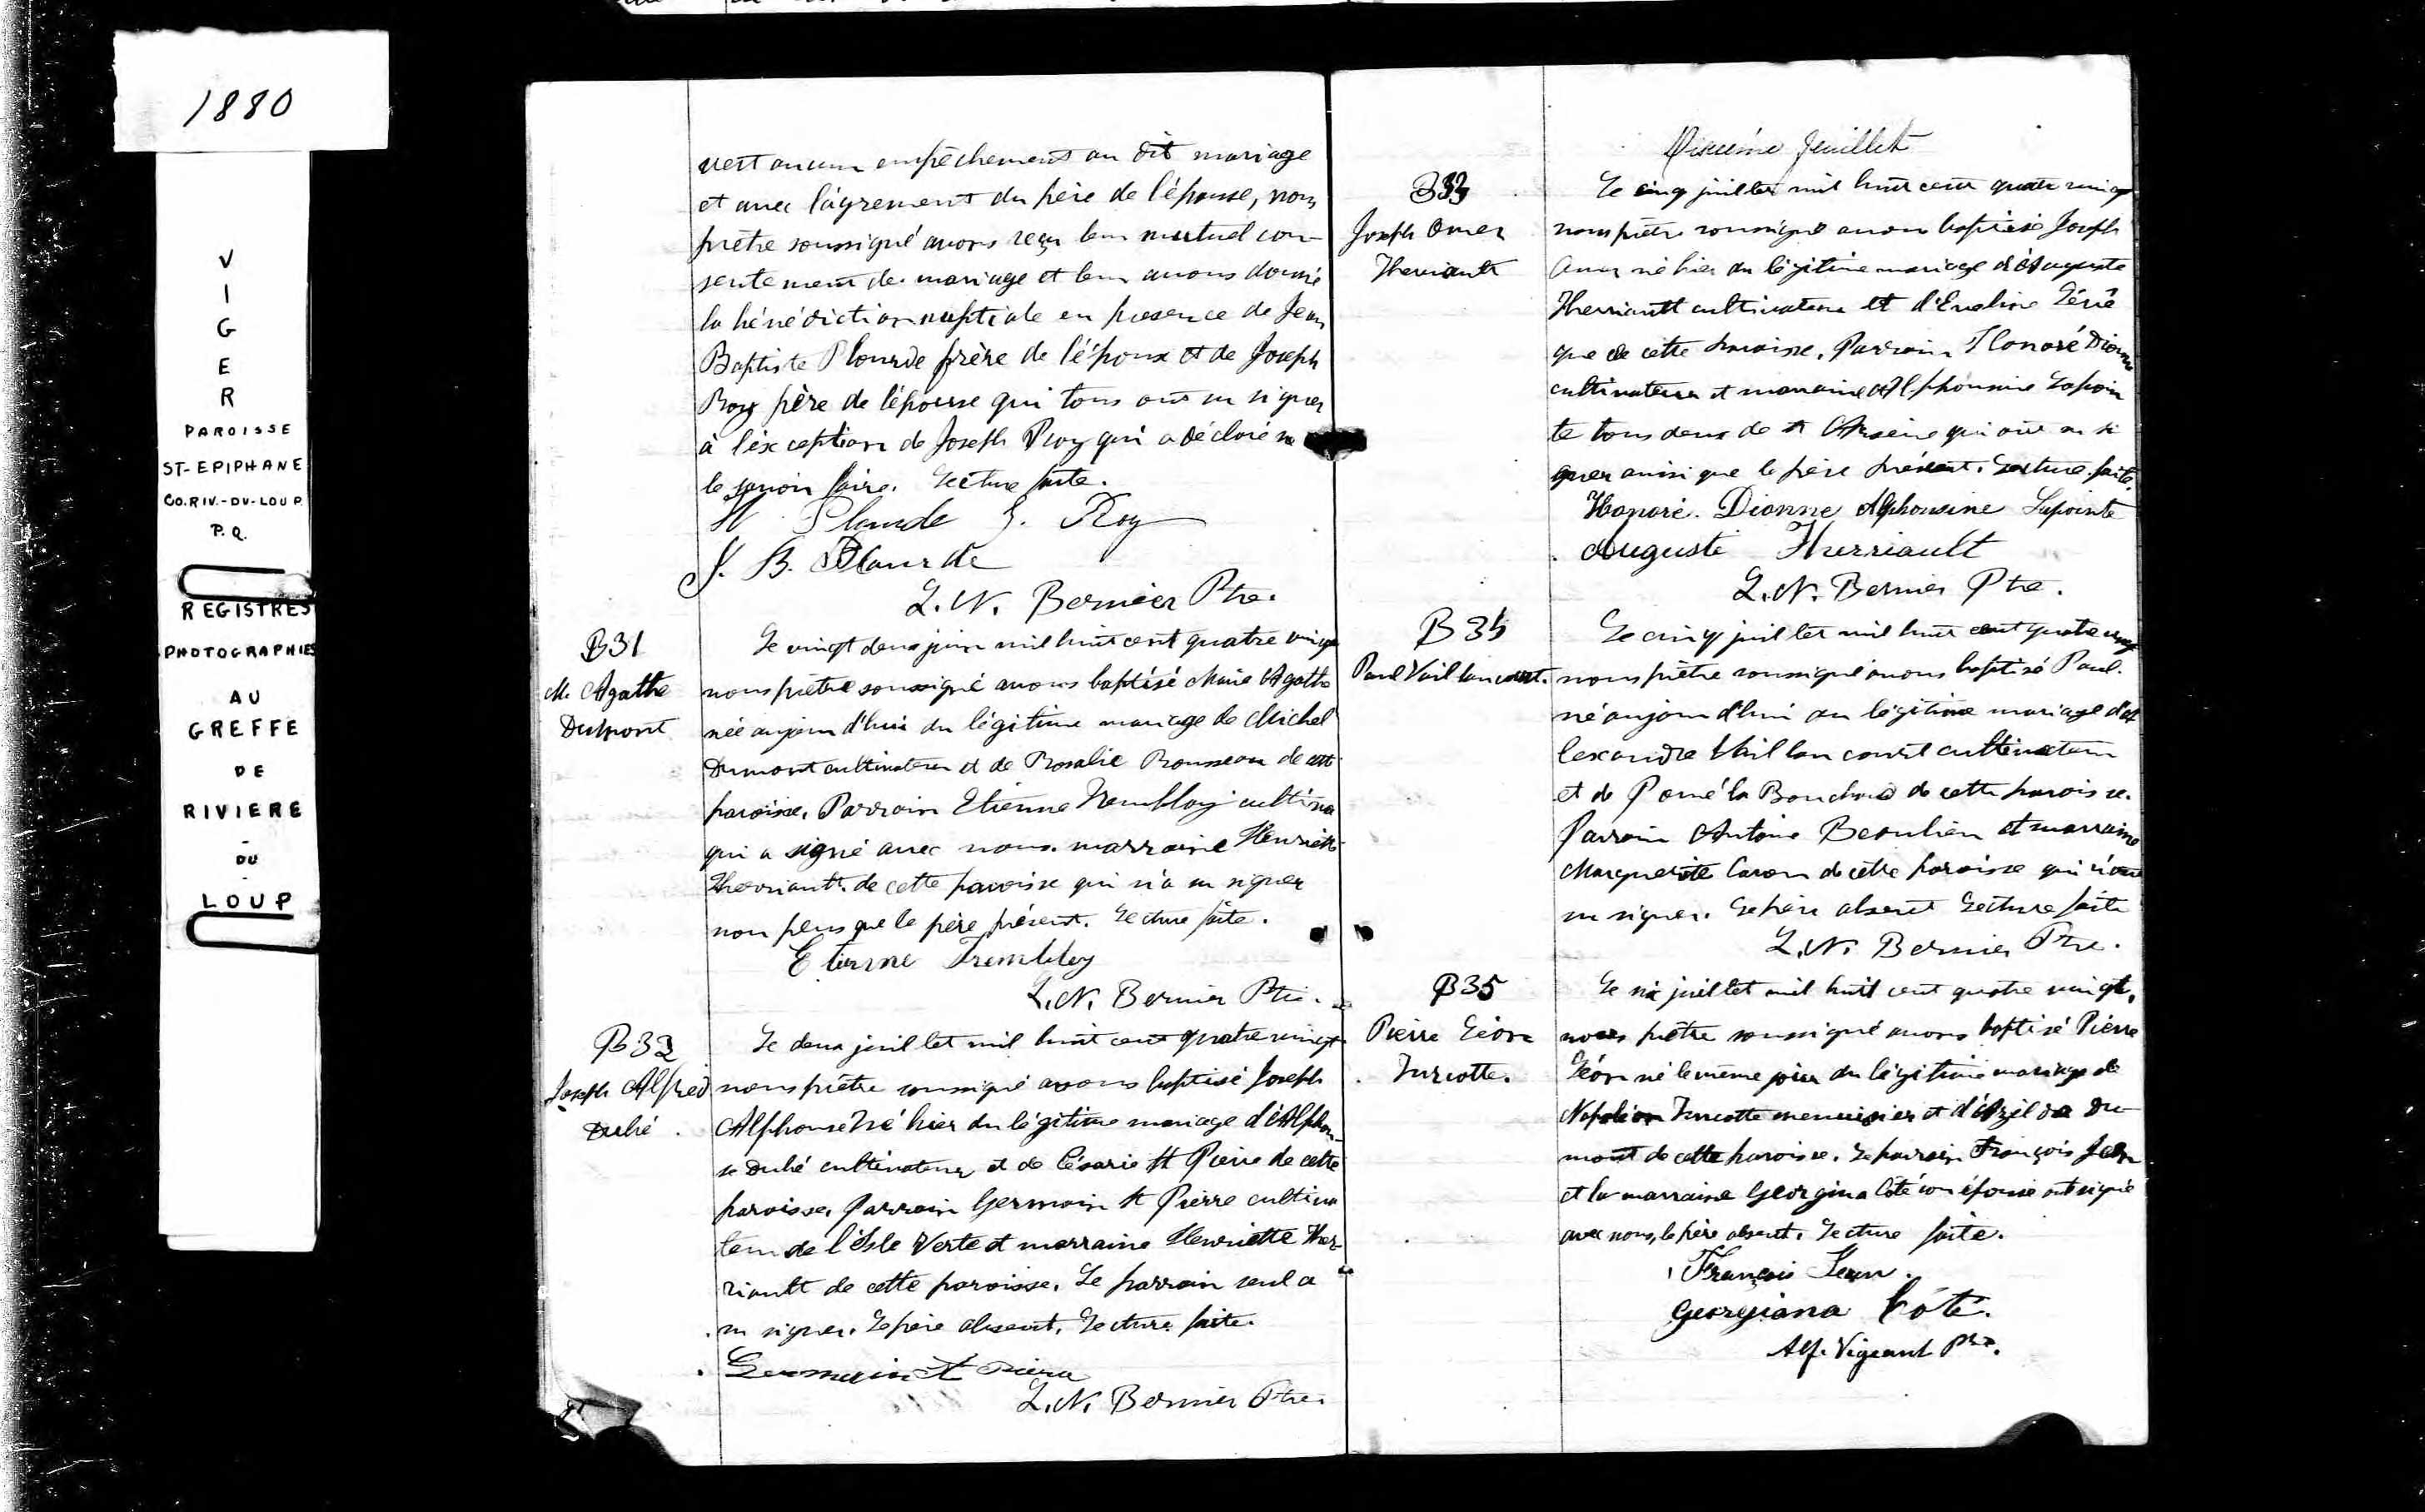 1880
VIGER
PAROISSE
ST-EPIPHANE
CO. RIV.-DU-LOUP
P.Q.
REGISTRES
PHOTOGRAPHIES
AU
GREFFE
DE
RIVIERE
-
DU
-
LOUP
vert aucun empêchement au dit mariage
et avec l'agrement du père de l'épouse, nous
prêtre soussigné avons reçu leur mutuel con-
sentement de mariage et leur avons donné
la bénédiction nuptiale en presence de Jean
Baptiste Plourde frère de l'époux et de Joseph
Roy père de l'épouse qui tous ont su signer
à l'exception de Joseph Roy qui a déclaré ne
le savoir faire. Lecture faite.
Plourde Roy
J. B. Plourde
L.N. Bernier Ptre.
B31
M. Agathe
Dumont
Le vingt deux juin mil huit cent quatre vingt
nous prêtre soussigné avons baptisé Marie Agathe
née aujourd'hui du légitime mariage de Michel
Dumont cultivateur et de Rosalie Rousseau de cette
paroisse. Parrain Etienne Tremblay cultiva
qui a signé avec nous. marraine Henriette
Therriault de cette paroisse qui n'a su signer
non plus que le père présent. Lecture faite.
Etienne Trembley
L.N. Bernier Ptre.
B32
Joseph Alfred
Dubé
Le deux juillet mil huit cent quatre vingt
nous prêtre soussigné avons baptisé Joseph
Alphonse né hier du légitime mariage d'Alphon-
se Dubé cultivateur et de Césarie St Pierre de cette
paroisse. Parrain Germain St Pierre cultiva
teur de l'Isle Verte et marraine Henriette Ther-
riault de cette paroisse. Le parrain seul a
su signer. Le père absent. Lecture faite.
Germain St Pierre
L.N. Bernier Ptre.
Dixième feuillet
B33
Joseph Omer
Theriault
Le cinq juillet mil huit cent quatre vingt
nous prêtre soussigné avons baptisé Joseph
Omer né hier du légitime mariage d'Auguste
Therriault cultivateur et d'Eveline Lévê
que de cette paroisse. Parrain Honoré Dionne
cultivateur et marraine Alphonsine Lapoin
te tous deux de St Arsène qui ont su si
gner ainsi que le père présent. Lecture faite.
Honoré. Dionne Alphonsine Lapointe
Auguste Therriault
L.N. Bernier Ptre.
B34
Paul Vaillancourt.
Le cinq juillet mil huit cent quatre vingt
nous prêtre soussigné avons baptisé Paul.
né aujourd'hui du légitime mariage d'A
lexandre Vaillancourt cultivateur
et de Paméla Bouchard de cette paroisse.
Parrain Antoine Beaulieu et marraine
Marguerite Caron de cette paroisse qui n'ont
su signer. Le père absent Lecture faite
L.N. Bernier Ptre.
B35
Pierre Léon
Turcotte.
Le six juillet mil huit cent quatre vingt,
nous prêtre soussigné avons baptisé Pierre
Léon né le même jour du légitime mariage de
Napoléon Turcotte menuisier et d'Azélda Du-
mont de cette paroisse. Le parrain François Jean
et la marraine Georgina Côté son épouse ont signé
avec nous, le père absent. Lecture faite.
François Jean.
Georgiana Côté.
Alf. Vigeant Ptre.